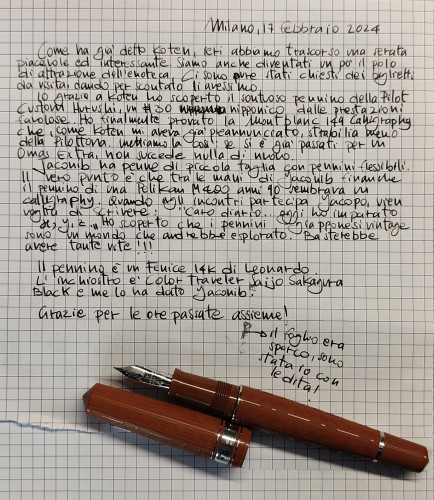 Milano, 17 febbraio 2024
Come ha già detto Koten, ieri abbiamo trascorso una serata
piacevole ed interessante. Siamo anche diventati un po' il polo
di attrazione dell'enoteca. Ci sono pure stati chiesti dei biglietti
da visita dando per scontato li avessimo.
Io grazie a Koten ho scoperto il sontuoso pennino della Pilot
Custom Urushi, un #30 nipponico dalle prestazioni
favolose. Ho finalmente provato la Montblanc 149 Calligraphy
che, come Koten mi aveva già preannunciato, strabilia meno
della Pilottona. Mettiamola così: se si è già passati per un
Omas Extra, non succede nulla di nuovo.
Jaconib ha penne di piccola taglia con pennini flessibili.
Il vero punto è che tra le mani di Jaconib finanche
il pennino di una Pelikan M400 anni 90 sembrava un
calligraphy. Quando agli incontri partecipa Jacopo, vien
voglia di scrivere: "Caro diario, oggi ho imparato
x, y, z". Ho scoperto che i pennini giapponesi vintage
sono un mondo che andrebbe esplorato. Basterebbe
avere tante vite!!!
Il pennino è un Fenice 14k di Leonardo.
L'inchiostro è Color Traveler Saijo Sakagura
Black e me lo ha dato Jaconib.
Grazie per le ore passate assieme!
il foglio era
sporco, sono
stata io con
le dita!